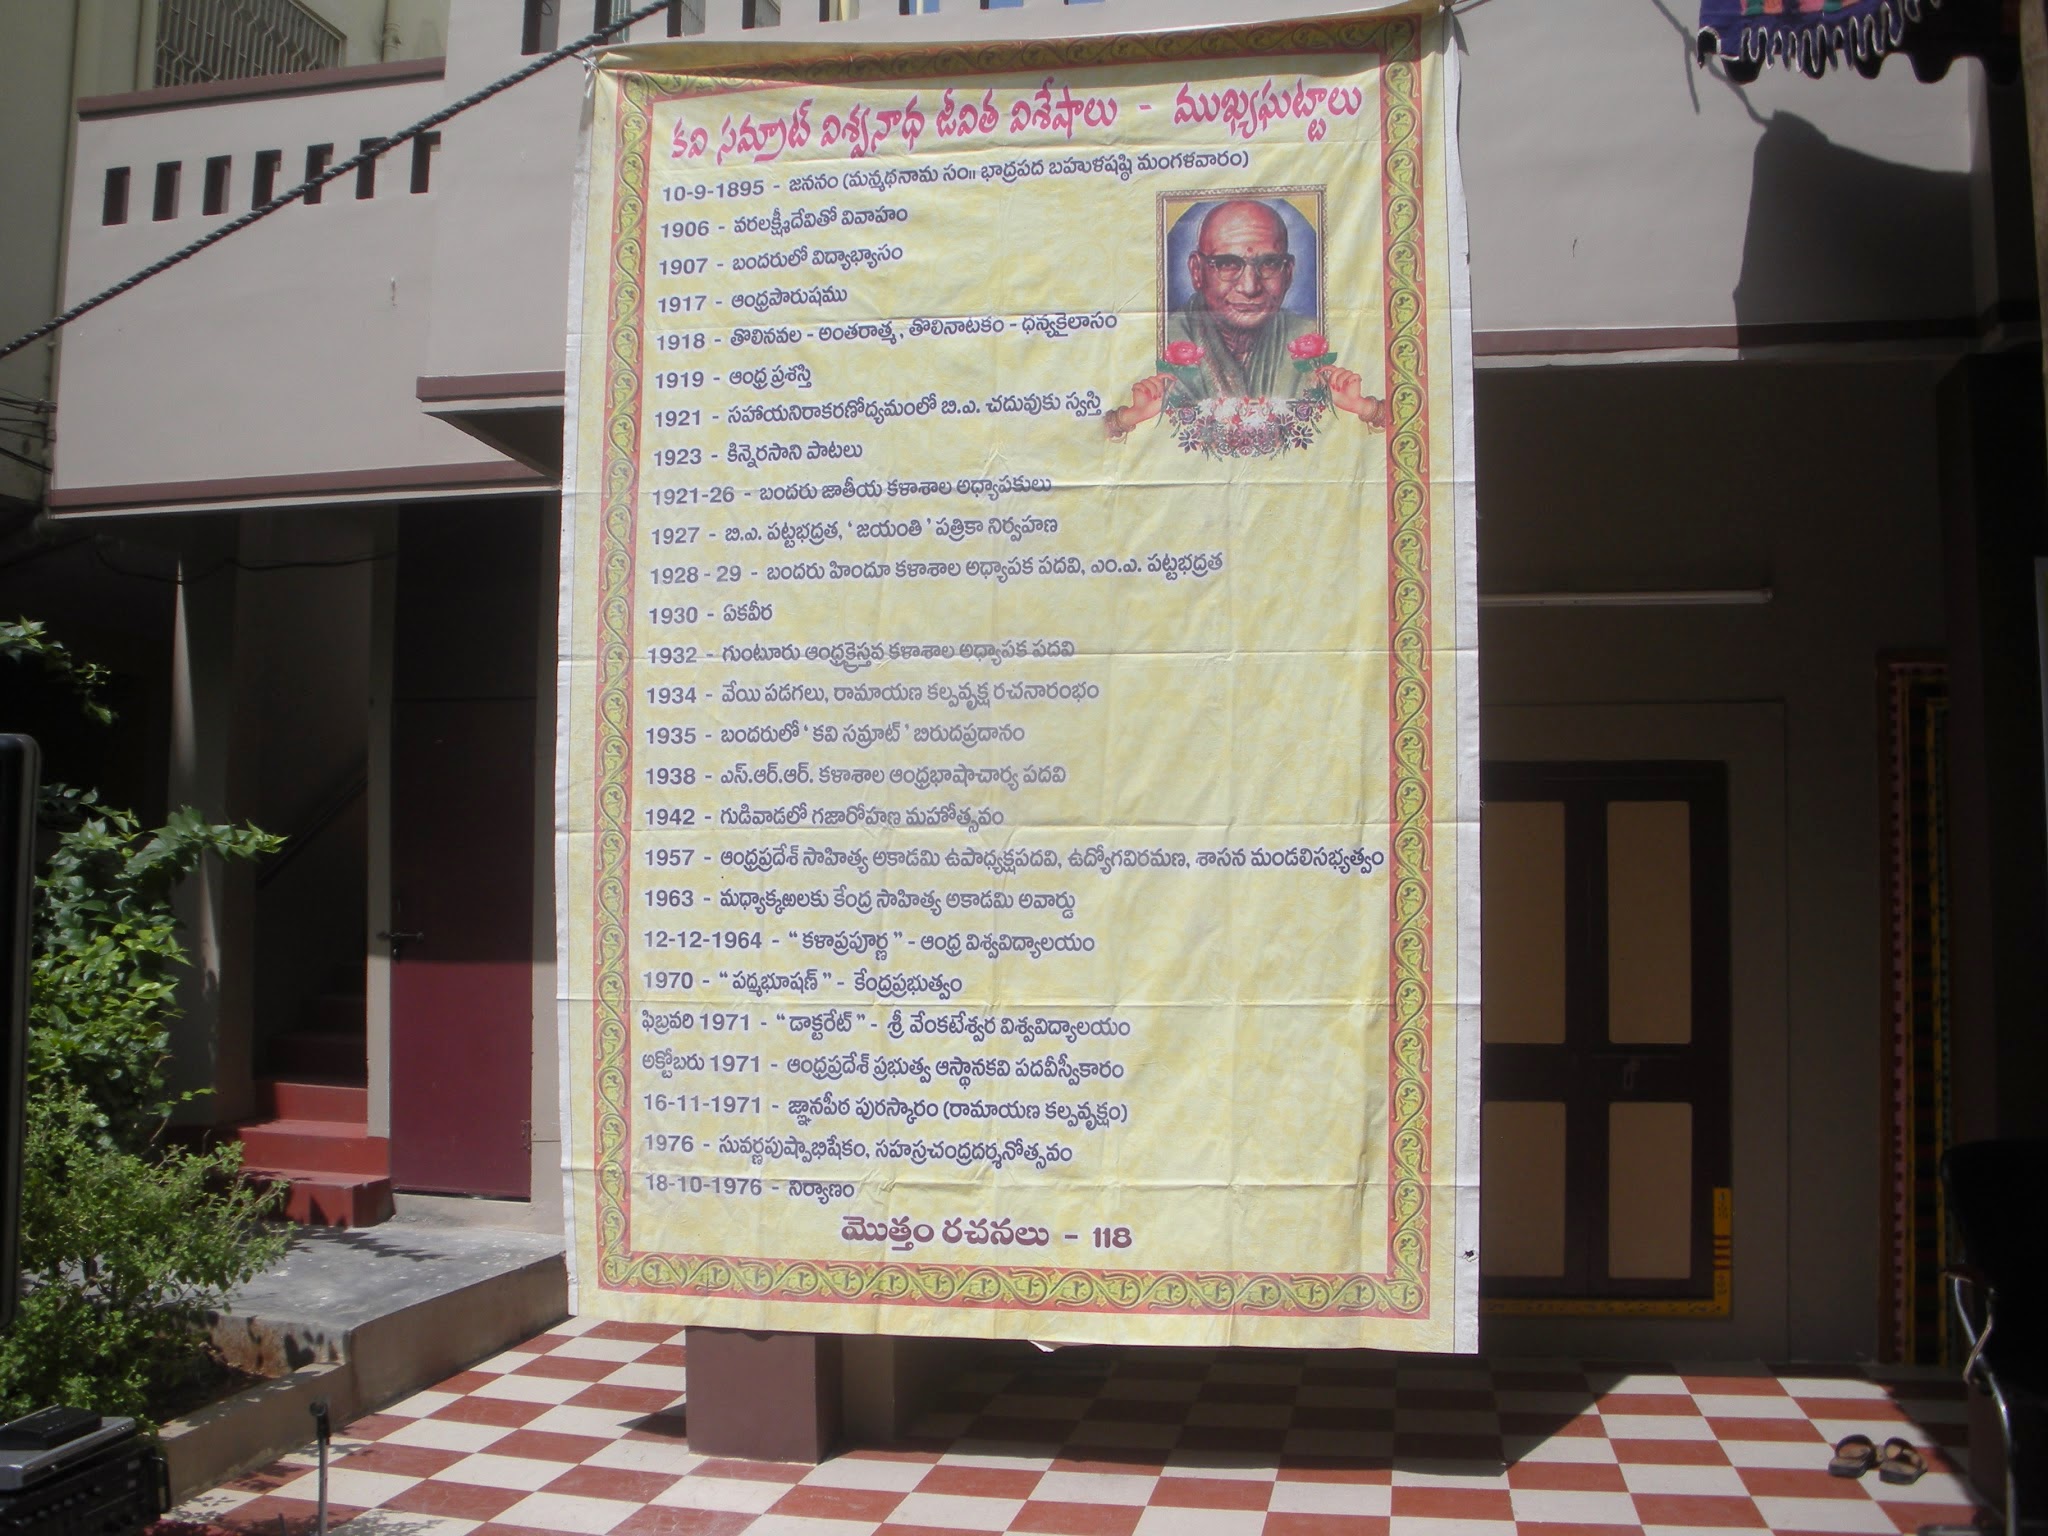 కవి సమ్రాట్ విశ్వనాథ జీవిత విశేషాలు - ముఖ్యఘట్టాలు
10-9-1895 - జననం (మన్మథనామ సం॥ భాద్రపద బహుళషష్ఠి మంగళవారం)
1906 - వరలక్ష్మీదేవితో వివాహం
1907 - బందరులో విద్యాభ్యాసం
1917 - ఆంధ్రపౌరుషము
1918 - తొలినవల - అంతరాత్మ, తొలినాటకం - ధన్యకైలాసం
1919 - ఆంధ్ర ప్రశస్తి
1921 - సహాయనిరాకరణోద్యమంలో బి.ఎ. చదువుకు స్వస్తి
1923 - కిన్నెరసాని పాటలు
1921-26 - బందరు జాతీయ కళాశాల అధ్యాపకులు
1927 - బి.ఎ. పట్టభద్రత, ‘ జయంతి ’ పత్రికా నిర్వహణ
1928 - 29 - బందరు హిందూ కళాశాల అధ్యాపక పదవి, ఎం.ఎ. పట్టభద్రత
1930 - ఏకవీర
1932 - గుంటూరు ఆంధ్రక్రైస్తవ కళాశాల అధ్యాపక పదవి
1934 - వేయి పడగలు, రామాయణ కల్పవృక్ష రచనారంభం
1935 - బందరులో ‘ కవి సమ్రాట్ ’ బిరుదప్రదానం
1938 - ఎస్.ఆర్.ఆర్. కళాశాల ఆంధ్రభాషాచార్య పదవి
1942 - గుడివాడలో గజారోహణ మహోత్సవం
1957 - ఆంధ్రప్రదేశ్ సాహిత్య అకాడమి ఉపాధ్యక్షపదవి, ఉద్యోగవిరమణ, శాసన మండలిసభ్యత్వం
1963 - మధ్యాక్కఱలకు కేంద్ర సాహిత్య అకాడమి అవార్డు
12-12-1964 - “ కళాప్రపూర్ణ ” - ఆంధ్ర విశ్వవిద్యాలయం
1970 - “ పద్మభూషణ్ ” - కేంద్రప్రభుత్వం
ఫిబ్రవరి 1971 - “ డాక్టరేట్ ” - శ్రీ వేంకటేశ్వర విశ్వవిద్యాలయం
అక్టోబరు 1971 - ఆంధ్రప్రదేశ్ ప్రభుత్వ ఆస్థానకవి పదవీస్వీకారం
16-11-1971 - జ్ఞానపీఠ పురస్కారం (రామాయణ కల్పవృక్షం)
1976 - సువర్ణపుష్పాభిషేకం, సహస్రచంద్రదర్శనోత్సవం
18-10-1976 - నిర్యాణం
మొత్తం రచనలు - 118